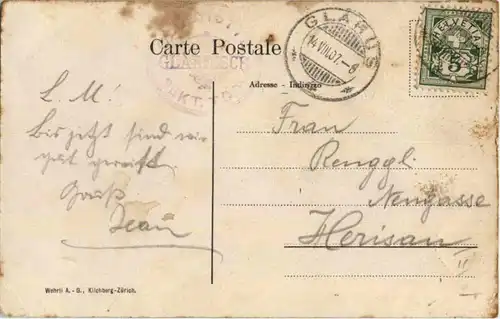 Carte Postale
GLARUS
14.VIII.07.-6
HELVETIA
5
Adresse - Indirizzo
L. M!
Bis jetzt sind wir
gut gereist.
Gruß
Jean
Frau
Renggli
Neugasse
Herisau
Wehrli A.-G., Kilchberg-Zürich.